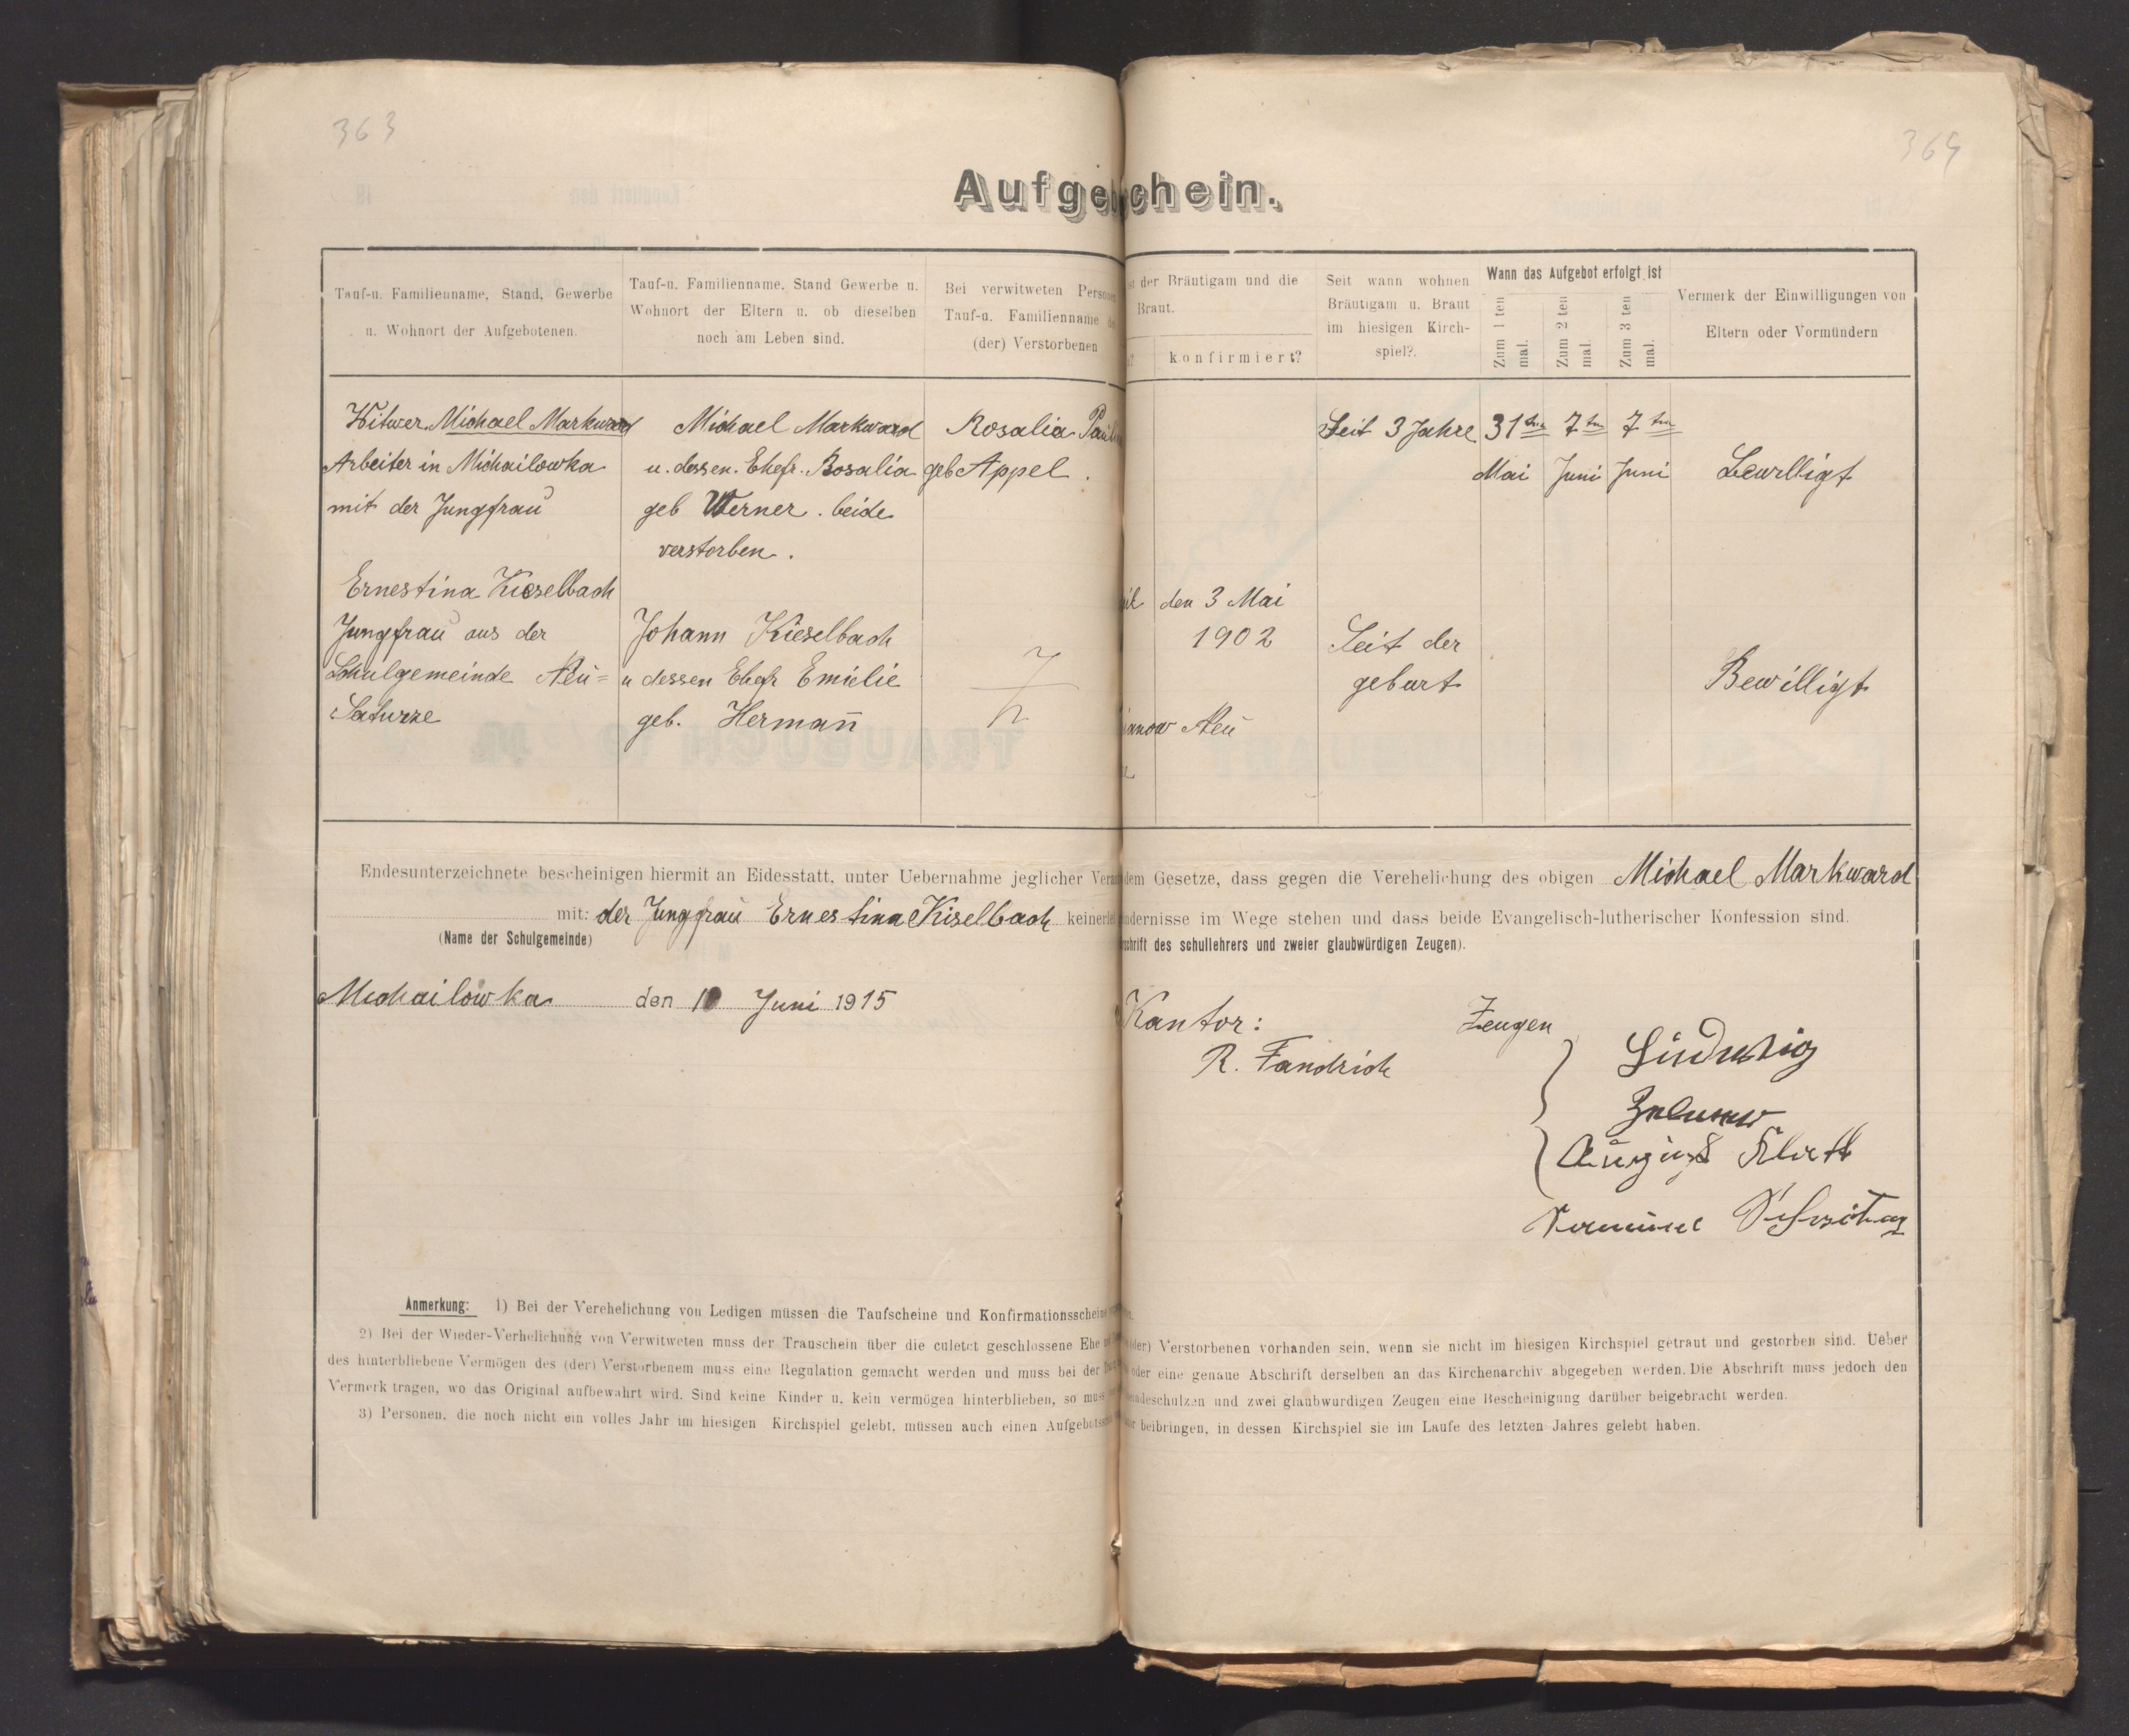 363
364
Aufge chein.
Tauf-u. Familienname, Stand, Gewerbe
u. Wohnort der Aufgebotenen.
Tauf-u. Familienname, Stand Gewerbe u.
Wohnort der Eltern u. ob dieselben
noch am Leben sind.
Bei verwitweten
Tauf-u. Familienname
(der) Verstorbenen
der Bräutigam und die
Braut.
konfirmiert?
Seit wann wohnen
Bräutigam u. Braut
im hiesigen Kirch-
spiel?.
Wann das Aufgebot erfolgt ist
Zum 1 ten
mal.
Zum 2 ten
mal.
Zum 3 ten
mal.
Vermerk der Einwilligungen von
Eltern oder Vormündern
Witwer Michael Markward
Arbeiter in Michailowka
mit der Jungfrau
Ernestina Kieselbach
Jungfrau aus der
Schulgemeinde Neu=
Saturze
Michael Markward
u. dessen. Ehefr. Rosalia
geb Werner. beide
verstorben.
Johann Kieselbach
u dessen Ehefr Emielie
geb. Hermañ
Rosalia
geb Appel.
den 3 Mai
1902
Neu
Seit 3 Jahre
Seit der
geburt
31ten
Mai
7ten
Juni
7ten
Juni
Bewilligt
Bewilligt
Endesunterzeichnete bescheinigen hiermit an Eidesstatt, unter Uebernahme jeglicher dem Gesetze, dass gegen die Verehelichung des obigen Michael Markward
mit: der Jungfrau Ernestina Kiselbach ndernisse im Wege stehen und dass beide Evangelisch-lutherischer Konfession sind.
(Name der Schulgemeinde) schrift des schullehrers und zweier glaubwürdigen Zeugen).
Michailowka den 10 Juni 1915
Kantor:
R. Fandrich
Zeugen
Ludwig
August
Anmerkung: 1) Bei der Verehelichung von Ledigen müssen die Taufscheine und Konfirmationsscheine
2) Bei der Wieder-Verhelichung von Verwitweten muss der Trauschein über die culetct geschlossene Ehe (der) Verstorbenen vorhanden sein, wenn sie nicht im hiesigen Kirchspiel getraut und gestorben sind. Ueber
des hinterbliebene Vermögen des (der) Verstorbenem muss eine Regulation gemacht werden und muss bei der oder eine genaue Abschrift derselben an das Kirchenarchiv abgegeben werden. Die Abschrift muss jedoch den
Vermerk tragen, wo das Original aufbewahrt wird. Sind keine Kinder u. kein vermögen hinterblieben, so muss deschulzen und zwei glaubwurdigen Zeugen eine Bescheinigung darüber beigebracht werden.
3) Personen, die noch nicht ein volles Jahr im hiesigen Kirchspiel gelebt, müssen auch einen beibringen, in dessen Kirchspiel sie im Laufe des letzten Jahres gelebt haben.